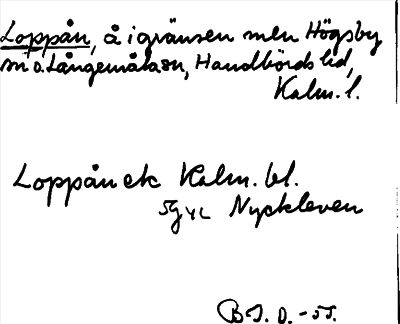 Loppån, å i gränsen mellan Högsby
sn o Långemåla sn, Handbörds hd,
Kalm. l.
Loppån ek Kalm. bl.
5g Nyckleven